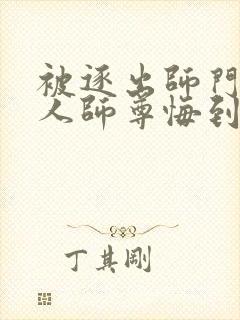 被逐出師門
人師尊悔到
丁其剛